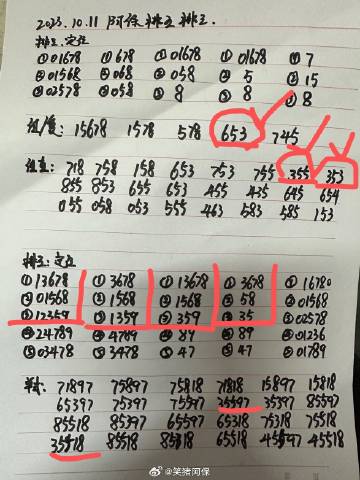 2023.10.11 阿保排三排五
排三:定位
①01678 ①678 ①01678 ①01678 ①7
②01568 ②068 ②058 ②5 ②15
③02578 ③058 ③8 ③8 ③8
15678 1578 578 653 745
组直: 718 758 158 653 753 755 355 353
855 853 655 653 455 435 645 654
055 058 053 555 463 583 585 153
排五:定位
①13678 ①3678 ①13678 ①3678 ①16780
②01568 ②1568 ②1568 ②58 ②01568
③12359 ③1359 ③359 ③35 ③02578
④24789 ④4789 ④89 ④89 ④01236
⑤03478 ⑤3478 ⑤47 ⑤47 ⑤01789
71897 75897 75818 71818 15897 15818
65397 75397 75597 35597 35397 85597
85518 85397 65597 65318 75318 75518
35518 85518 85318 65518 45597 45518
@笑猪阿保